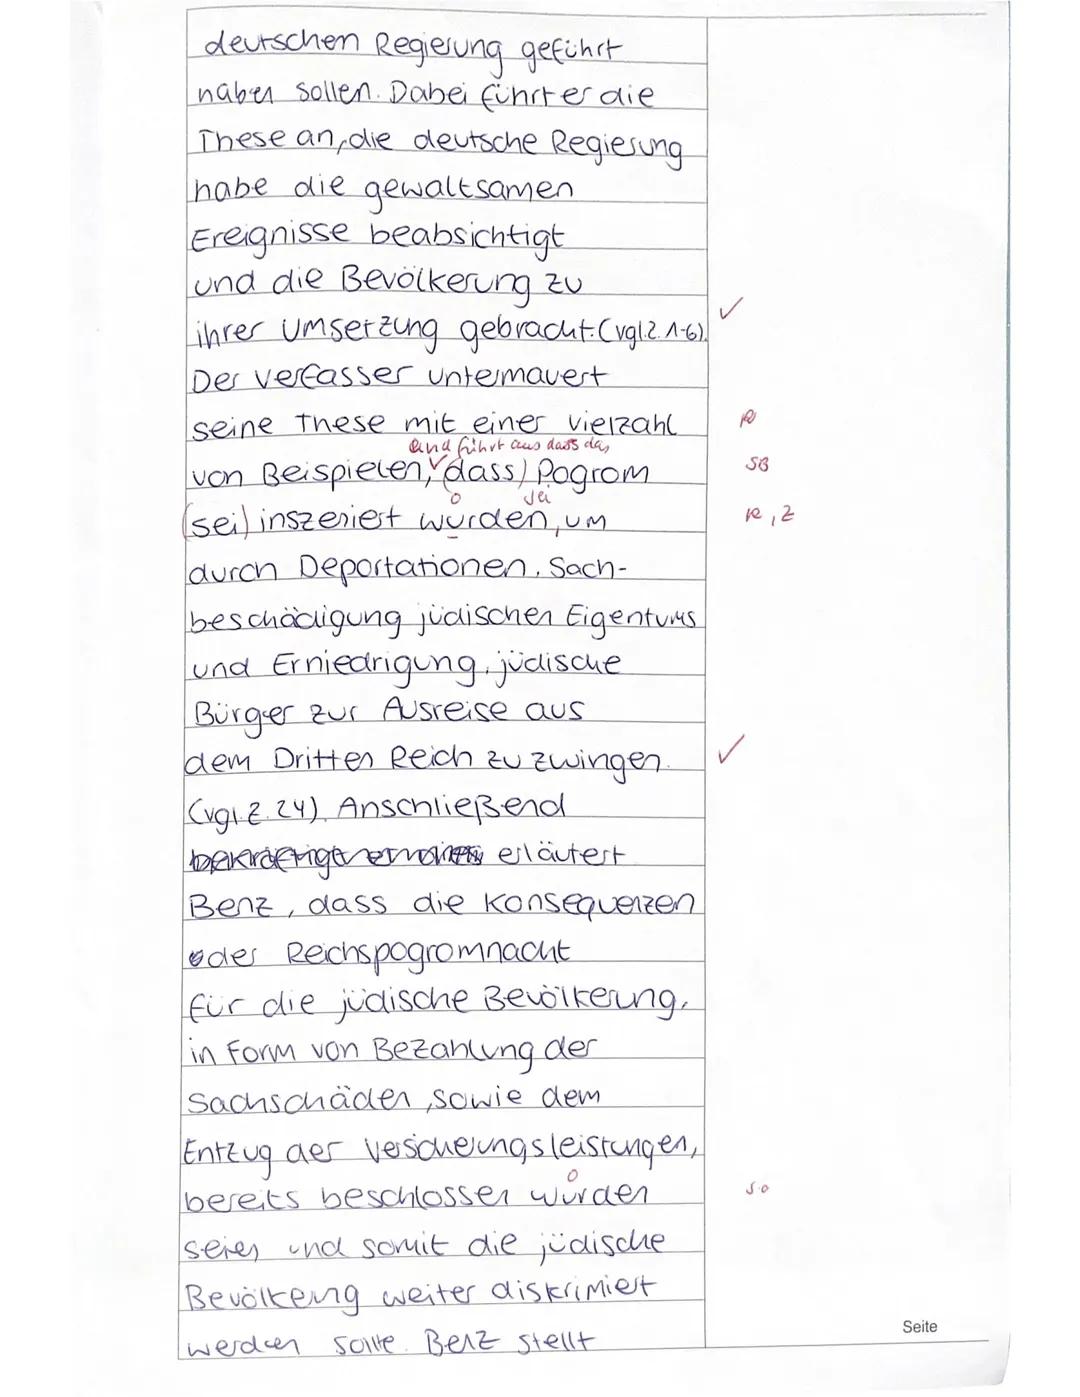 deutschen Regierung geführt
haben sollen. Dabei führt er die
These an, die deutsche Regierung
habe die gewaltsamen
Ereignisse beabsichtigt
und die Bevölkerung zu
ihrer Umsetzung gebracht. (vgl. Z. 1-6). ✓
Der Verfasser untermauert
seine These mit einer Vielzahl R
und führt aus dass das
von Beispielen, (dass) Pogrom SB
o sei
(sei) inszeniert würden, um R, Z
durch Deportationen, Sach-
beschädigung jüdischen Eigentums
und Erniedrigung, jüdische
Bürger zur Ausreise aus
dem Dritten Reich zu zwingen. ✓
(vgl. Z. 24). Anschließend
erläutert
Benz, dass die Konsequenzen
der Reichspogromnacht
für die jüdische Bevölkerung,
in Form von Bezahlung der
Sachschäden, sowie dem
Entzug der Versicherungsleistungen,
o
bereits beschlossen würden s.o
seien und somit die jüdische
Bevölkerung weiter diskrimiert
werden sollte. Benz stellt
Seite